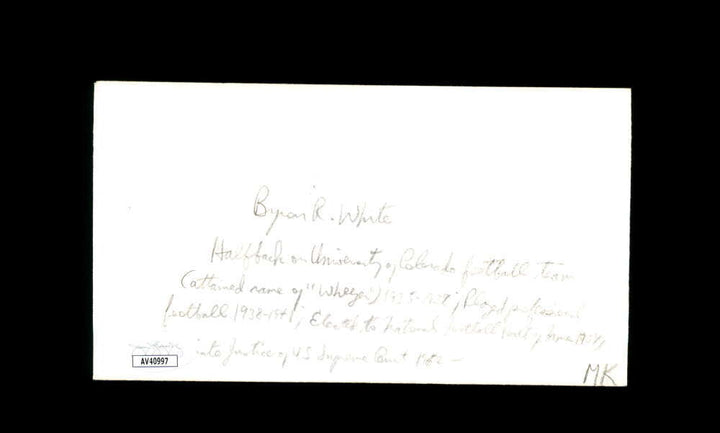 Byron R. White
Halfback on University of Colorado football team
(attained name of "Whizzer") 193 - ; Played professional
football 1938-1941; Elected to National Football Hall of Fame
Justice of US Supreme Court 1962 –
AV40997
MK